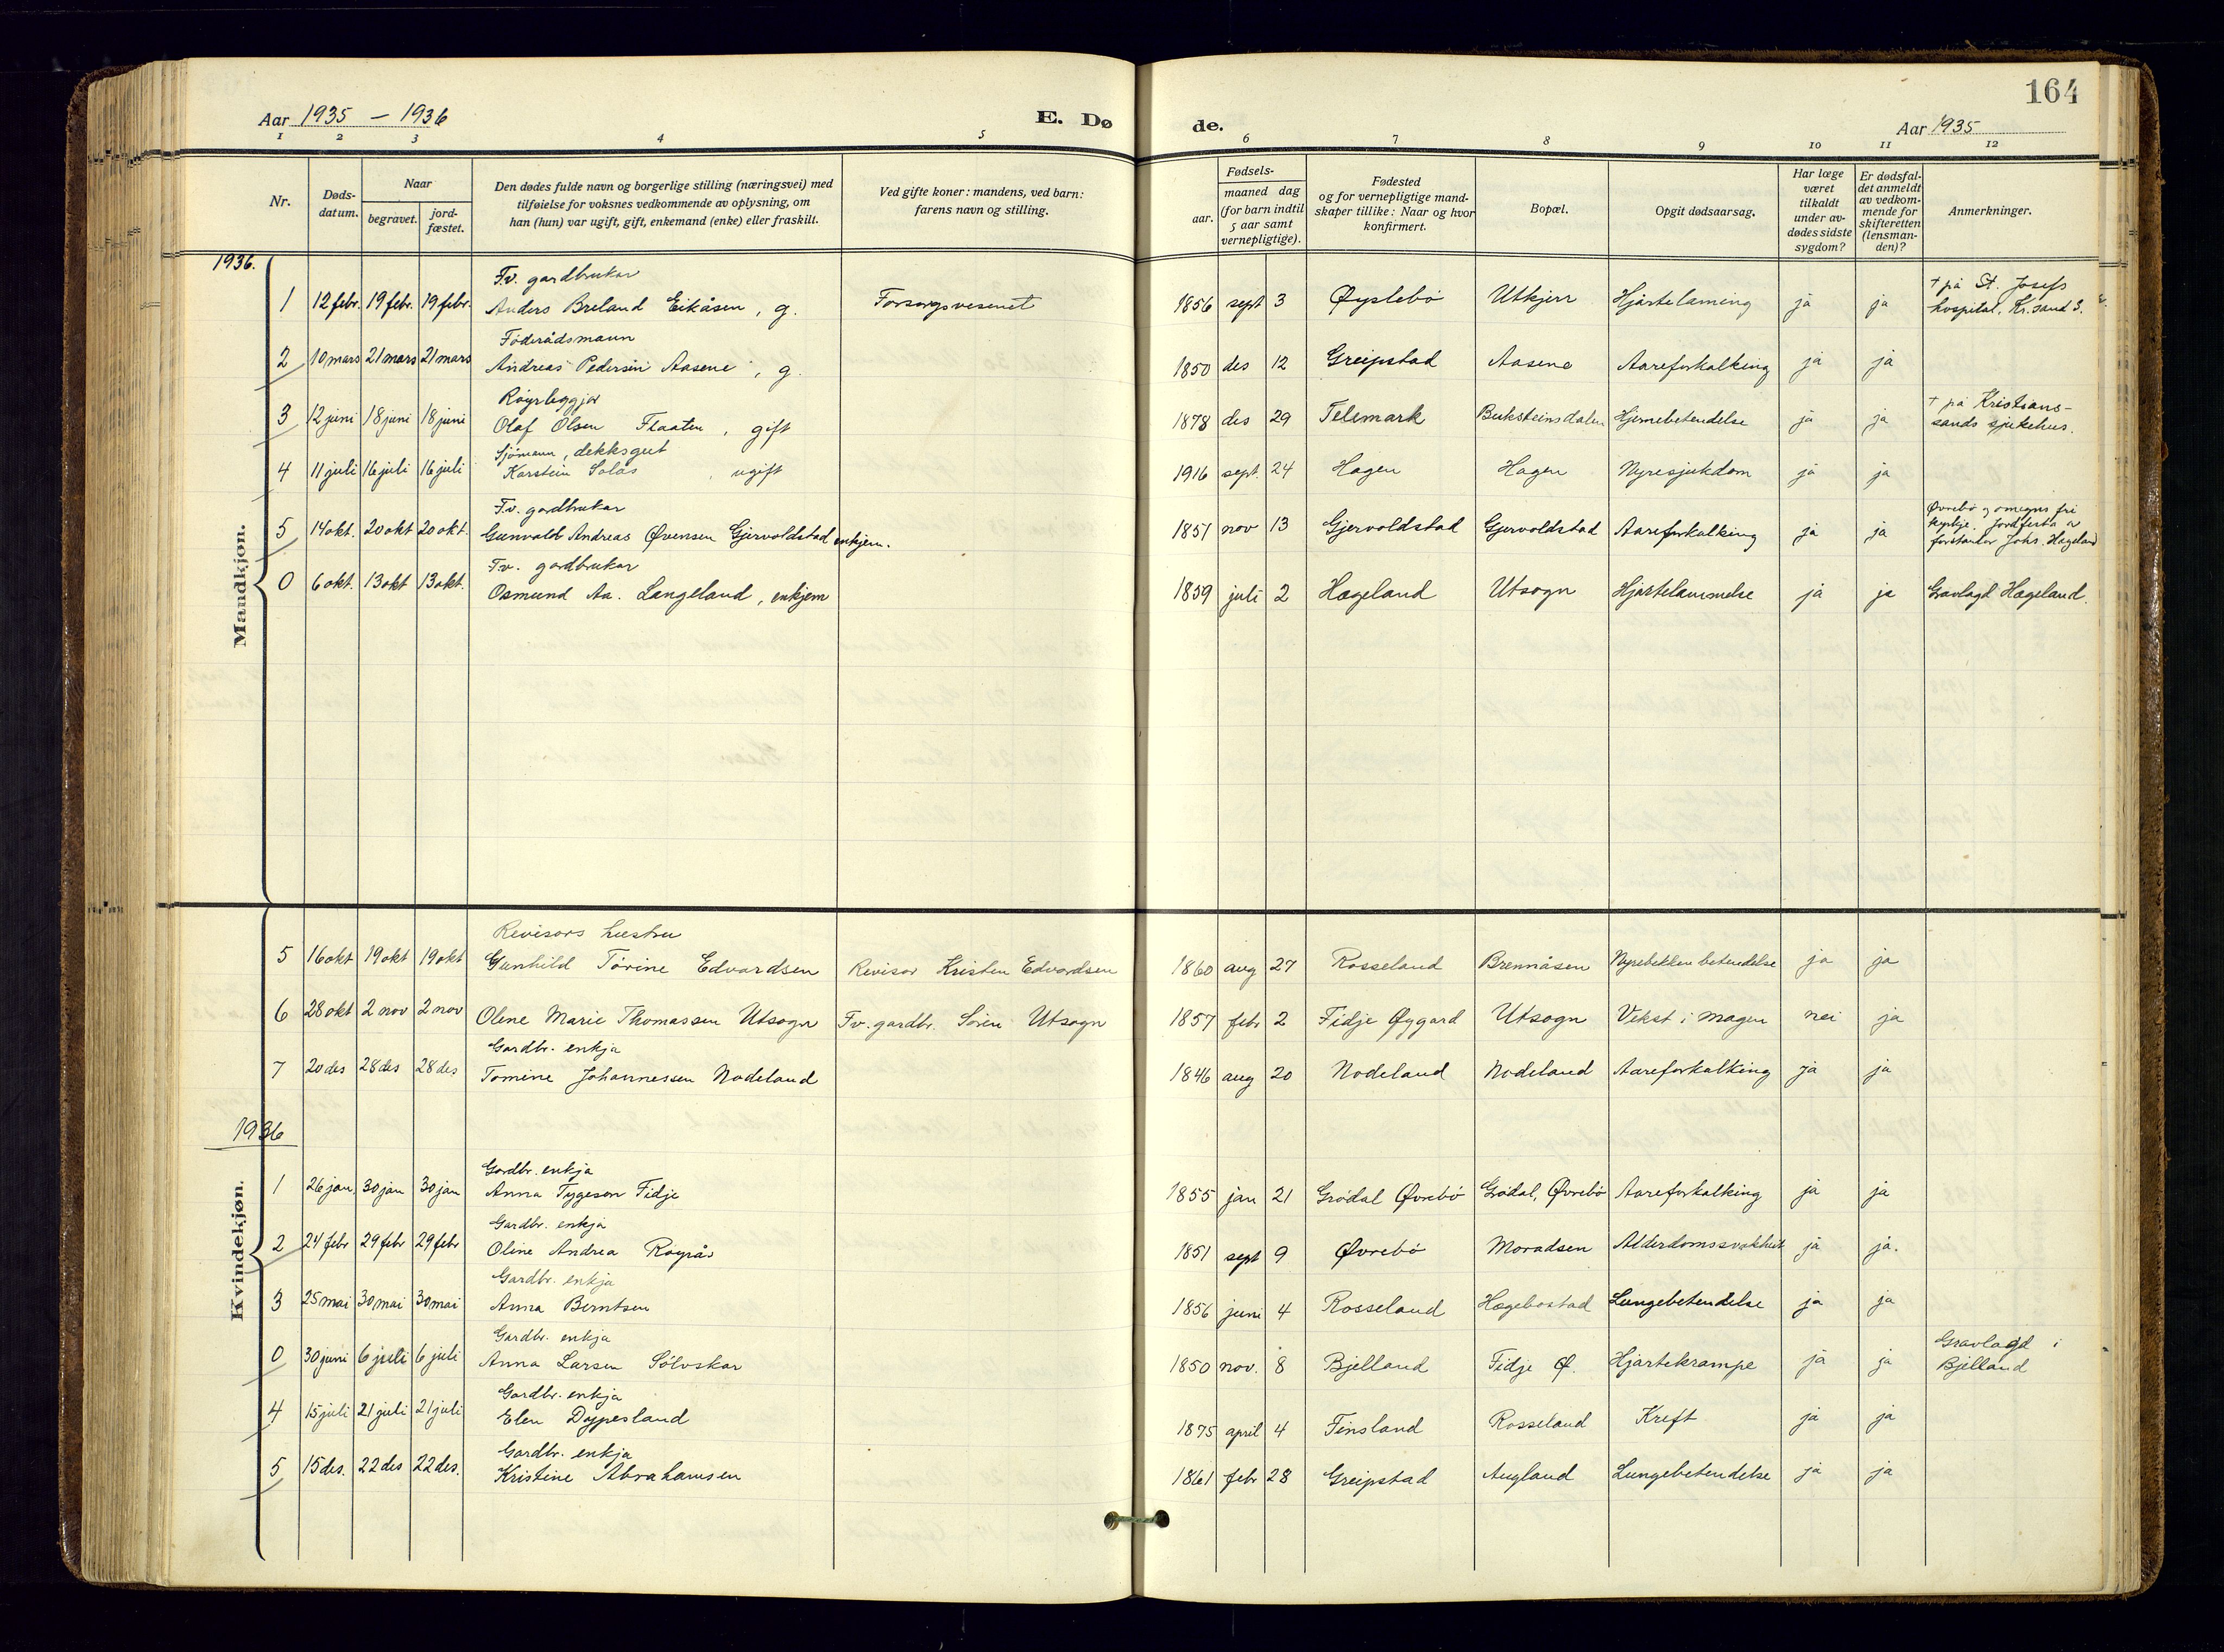 164
Aar 1935 – 1936 E. Dø de. Aar 1935
1 2 3 4 5 6 7 8 9 10 11 12
Nr.
Døds-
datum.
Naar
begravet.
jord-
fæstet.
Den dødes fulde navn og borgerlige stilling (næringsvei) med
tilføielse for voksnes vedkommende av oplysning, om
han (hun) var ugift, gift, enkemand (enke) eller fraskilt.
Ved gifte koner: mandens, ved barn:
farens navn og stilling.
Fødsels-
aar.
maaned dag
(for barn indtil
5 aar samt
vernepligtige).
Fødested
og for vernepligtige mand-
skaper tillike: Naar og hvor
konfirmert.
Bopæl.
Opgit dødsaarsag.
Har læge
været
tilkaldt
under av-
dødes sidste
sygdom?
Er dødsfal-
det anmeldt
av vedkom-
mende for
skifteretten
(lensman-
den)?
Anmerkninger.
1936.
Mandkjøn.
Fv. gardbrukar
1 12 febr. 19 febr. 19 febr. Anders Breland Eikåsen, g. Forsorgsvesenet 1856 sept 3 Øyslebø Utkjerr Hjartelaming ja ja
† på St. Josefs
hospital, Kr.sand S.
Föderådsmann
2 10 mars 21 mars 21 mars Andreas Pedersen Aasene, g. 1850 des 12 Greipstad Aasene Aareforkalking ja ja
Røyrleggjar
3 12 juni 18 juni 18 juni Olaf Olsen Flaaten, gift 1878 des 29 Telemark Buksteinsdalen Hjernebetendelse ja ja
† på Kristians-
sands sjukehus.
Sjömann, dekksgut
4 11 juli 16 juli 16 juli Karstein Solås, ugift 1916 sept. 24 Hagen Hagen Nyresjukdom ja ja
Fv. gardbrukar
5 14 okt. 20 okt 20 okt. Gunvald Andreas Øvensen Gjervoldstad enkjem. 1851 nov 13 Gjervoldstad Gjervoldstad Aareforkalking ja ja
Øvrebø og omegns fri
kyrkje. Jordfesta av
forstander Johs. Hægeland
Fv. gardbrukar
0 6 okt. 13 okt 13 okt. Osmund Aa. Langeland, enkjem 1859 juli 2 Hægeland Utsogn Hjartelammelse ja ja Gravlagd Hægeland.
Kvindekjøn.
Revisors hustru
5 16 okt 19 okt 19 okt Gunhild Tórine Edvardsen Revisor Kristen Edvardsen 1860 aug 27 Rosseland Brennåsen Nyrebekkenbetendelse ja ja
6 28 okt 2 nov 2 nov Olene Marie Thomassen Utsogn Fv. gardbr. Sören Utsogn 1857 febr 2 Fidje Øygard Utsogn Vekst i magen nei ja
Gardbr. enkja
7 20 des 28 des 28 des Tomine Johannessen Nodeland 1846 aug 20 Nodeland Nodeland Aareforkalking ja ja
1936
Gardbr. enkja
1 26 jan. 30 jan 30 jan Anna Tygeson Fidje 1855 jan 21 Grødal Øvrebø Grødal, Øvrebø Aareforkalking ja ja
Gardbr. enkja
2 24 febr 29 febr 29 febr Oline Andrea Röyrås 1851 sept 9 Øvrebø Moradsen Alderdomssvakheit ja ja.
Gardbr. enkja
3 25 mai 30 mai 30 mai Anna Berntsen 1856 juni 4 Rosseland Hægebostad Lungebetendelse ja ja
Gardbr. enkja
0 30 juni 6 juli 6 juli Anna Larsen Sölvskar 1850 nov. 8 Bjelland Fidje Ø. Hjartekrampe ja ja
Gravlagd i
Bjelland
Gardbr. enkja
4 15 juli 21 juli 21 juli Elen Dypesland 1875 april 4 Finsland Rosseland Kreft ja ja
Gardbr. enkja
5 15 des. 22 des 22 des. Kristine Abrahamsen 1861 febr 28 Greipstad Augland Lungebetendelse ja ja